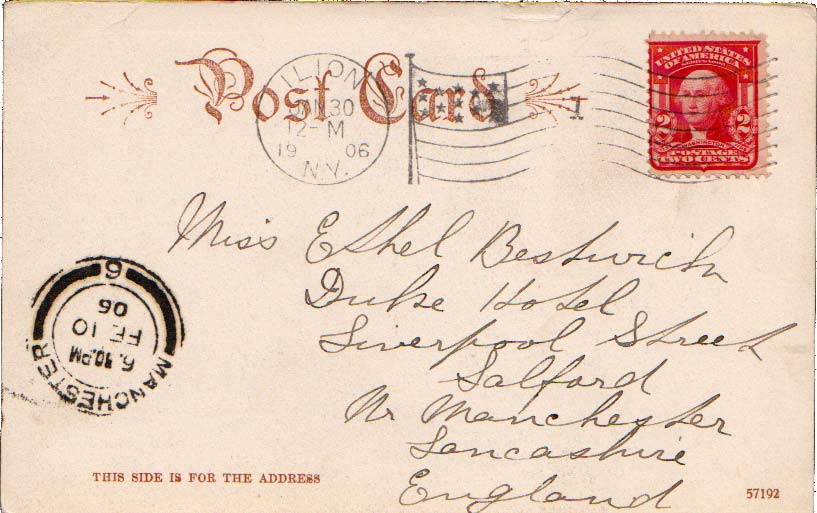 Post Card
ILION
JAN 30
12-M
19 06
N.Y.
1
UNITED STATES
OF AMERICA
2 2
WASHINGTON
POSTAGE
TWO CENTS
Miss Ethel Bestwich
Duke Hotel
Liverpool Street
Salford
Nr Manchester
Lancashire
England
MANCHESTER
6.30 PM
FE 10
06
9
THIS SIDE IS FOR THE ADDRESS
57192